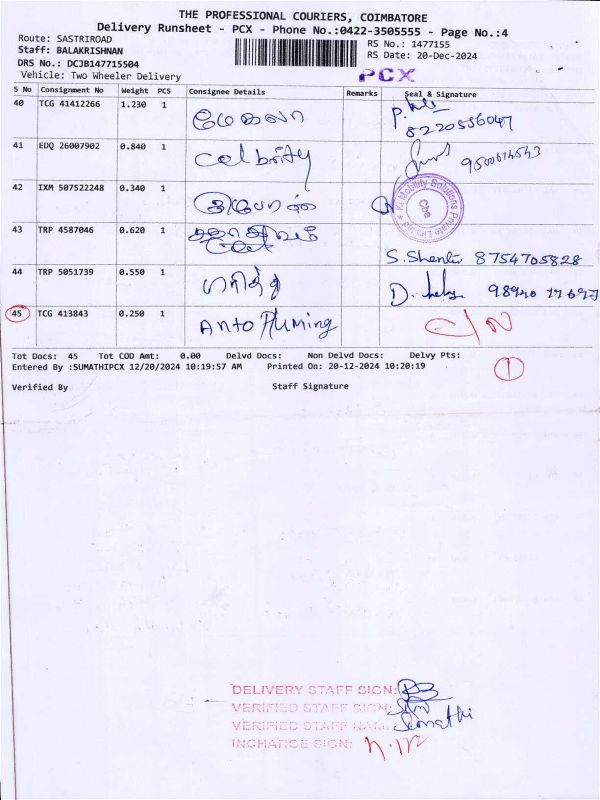 THE PROFESSIONAL COURIERS, COIMBATORE
Delivery Runsheet - PCX - Phone No.:0422-3505555 - Page No.:4
Route: SASTRIROAD
RS No.: 1477155
Staff: BALAKRISHNAN
RS Date: 20-Dec-2024
DRS No.: DCJB147715504
Vehicle: Two Wheeler Delivery
PCX
S No Consignment No Weight PCS Consignee Details Remarks Seal & Signature
40 TCG 41412266 1.230 1 மேகலா
8220556047
41 EDQ 26007902 0.840 1 Celbrity
9500614543
42 IXM 507522248 0.340 1
Ki Mobility Solutions Private Limited * Cbe
43 TRP 4587046 0.620 1 S. 8754705828
44 TRP 5051739 0.550 1 D.
45 TCG 413843 0.250 1 Anto
Tot Docs: 45 Tot COD Amt: 0.00 Delvd Docs: Non Delvd Docs: Delvy Pts:
1
Entered By :SUMATHIPCX 12/20/2024 10:19:57 AM Printed On: 20-12-2024 10:20:19
Verified By Staff Signature
DELIVERY STAFF SIGN:
VERIFIED STAFF SIGN:
VERIFIED STAFF NAME: Sumathi
INCHARGE SIGN: